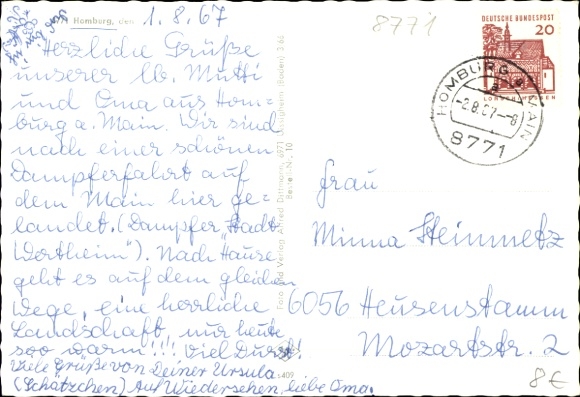 Homburg, den 1.8.67
Herzliche Grüße
unserer lb. Mutti
und Oma aus Hom-
burg a. Main. Wir sind
nach einer schönen
Dampferfahrt auf
dem Main hier ge-
landet. (Dampfer „Stadt
Wertheim"). Nach Hause
geht es auf dem gleichen
Wege, eine herrliche
Landschaft, nur heute
soo warm!!! Viel Durst!
Viele Grüße von Deiner Ursula
(Schätzchen) Auf Wiedersehen, liebe Oma.
8771
DEUTSCHE BUNDESPOST
20
HOMBURG MAIN
-2.8.67--8
8771
Frau
Minna Steinmetz
6056 Heusenstamm
Mozartstr. 2
8€